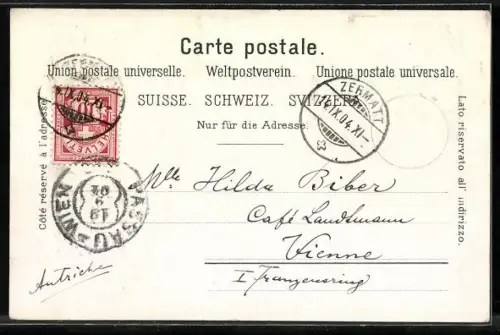 Carte postale.
Union postale universelle. Weltpostverein. Unione postale universale.
SUISSE. SCHWEIZ. SVIZZERA.
Nur für die Adresse.
Côté réservé à l'adresse.
Lato riservato all' indirizzo.
ZERMATT
IX.04.XI-
IX.04.XI-
HELVETIA
PASSAU-WIEN
13
9
04
Mlle Hilda Biber
Café Landtmann
Vienne
I Franzensring
Autriche